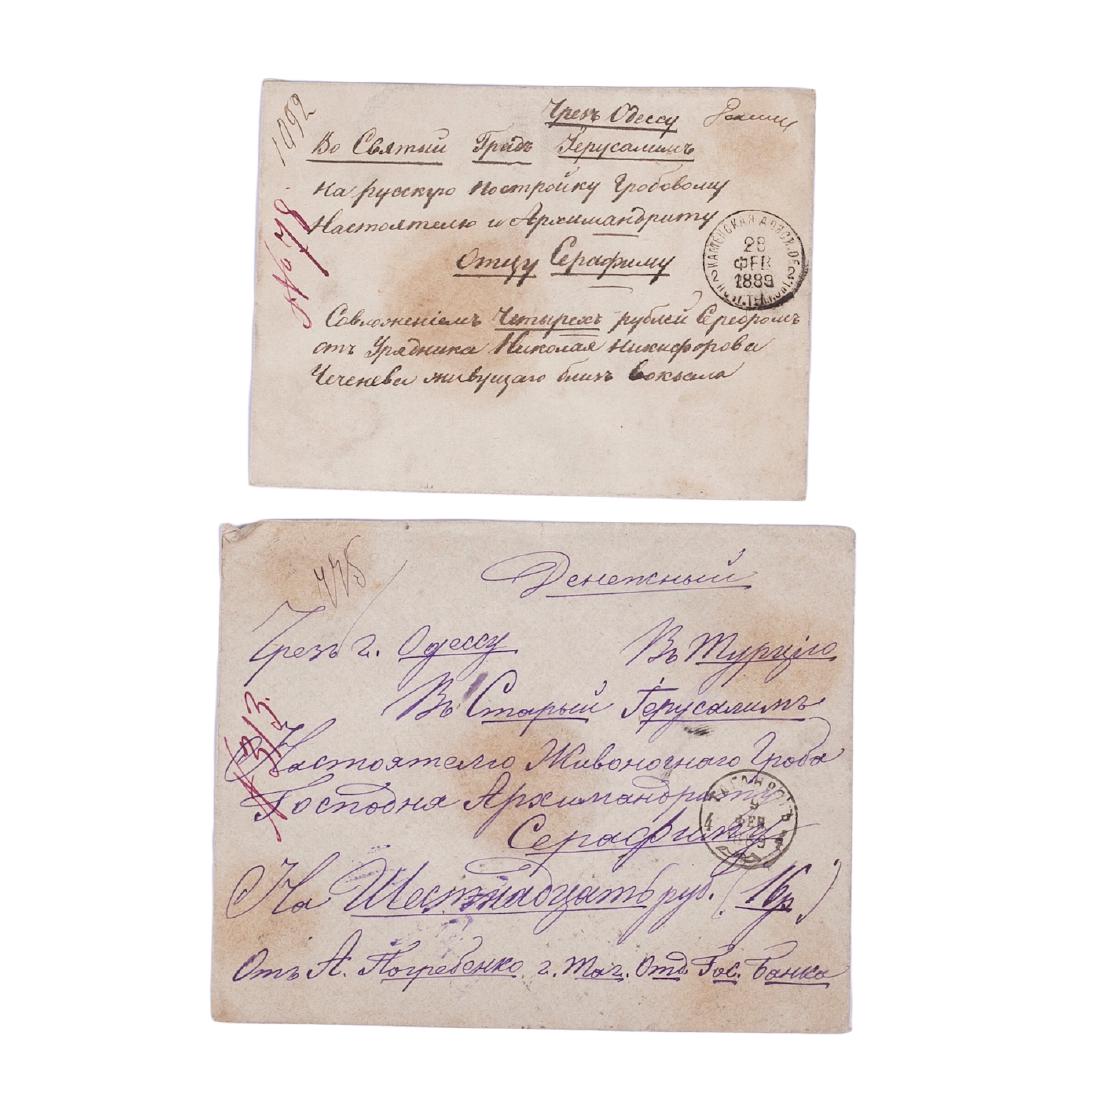 1092
Чрезъ Одессу
Во Святый Градъ Іерусалимъ
На русскую постройку Гробовому
Настоятелю и Архимандриту
Отцу Серафиму
№ 78.
28
ФЕВ
1889
Совложеніемъ Четырехъ рублей Серебромъ
отъ Урядника Николая Никифорова
Чеченева живущаго близъ вокзала
Денежный
Чрезъ г. Одессу Въ Турцію
Въ Старый Іерусалимъ
№ 313.
Настоятелю Живоноснаго Гроба
Господня Архимандриту
Серафиму
ТАГАНРОГЪ
5
ФЕВ
4
На Шестнадцать руб. (16р)
Отъ А. Погребенко г. Таг. Отд. Гос. Банка